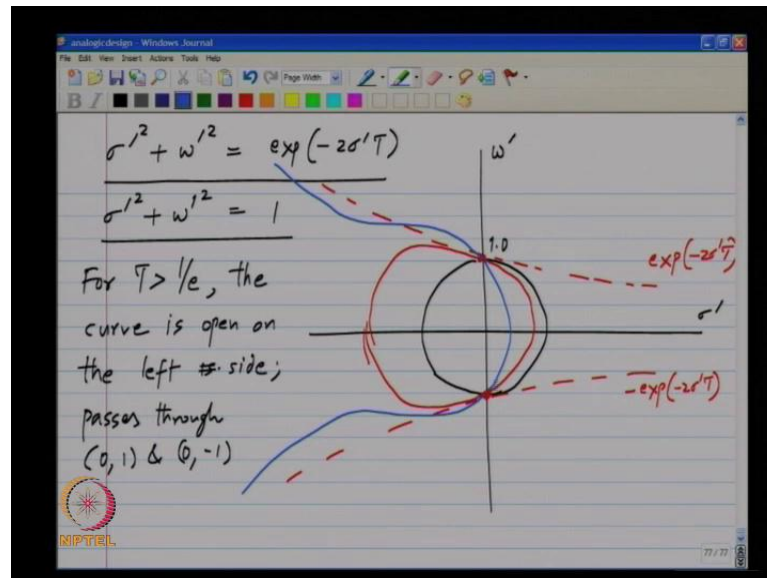 analogicdesign - Windows Journal
File Edit View Insert Actions Tools Help
Page Width
B I
σ'² + w'² = exp(-2σ'T)
σ'² + w'² = 1
For T > 1/e, the
curve is open on
the left side;
passes through
(0, 1) & (0, -1)
w'
1.0
exp(-2σ'T)
σ'
-exp(-2σ'T)
NPTEL
77 / 77